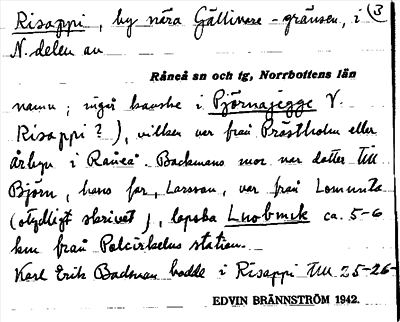 Risappi, by nära Gällivare-gränsen, i ③
N. delen av
Råneå sn och tg, Norrbottens län
namn; ingå kanske i Björnajegge V.
Risappi?), vilken var från Prästholm eller
årbyn i Råneå. Backmans mor var dotter till
Björn, hans far, Larsson, var från
(otydligt skrivet), lapska Luobmik ca. 5-6
km från Polcirkelns station.
Karl Erik Backman bodde i Risappi till 25-26-
EDVIN BRÄNNSTRÖM 1942.